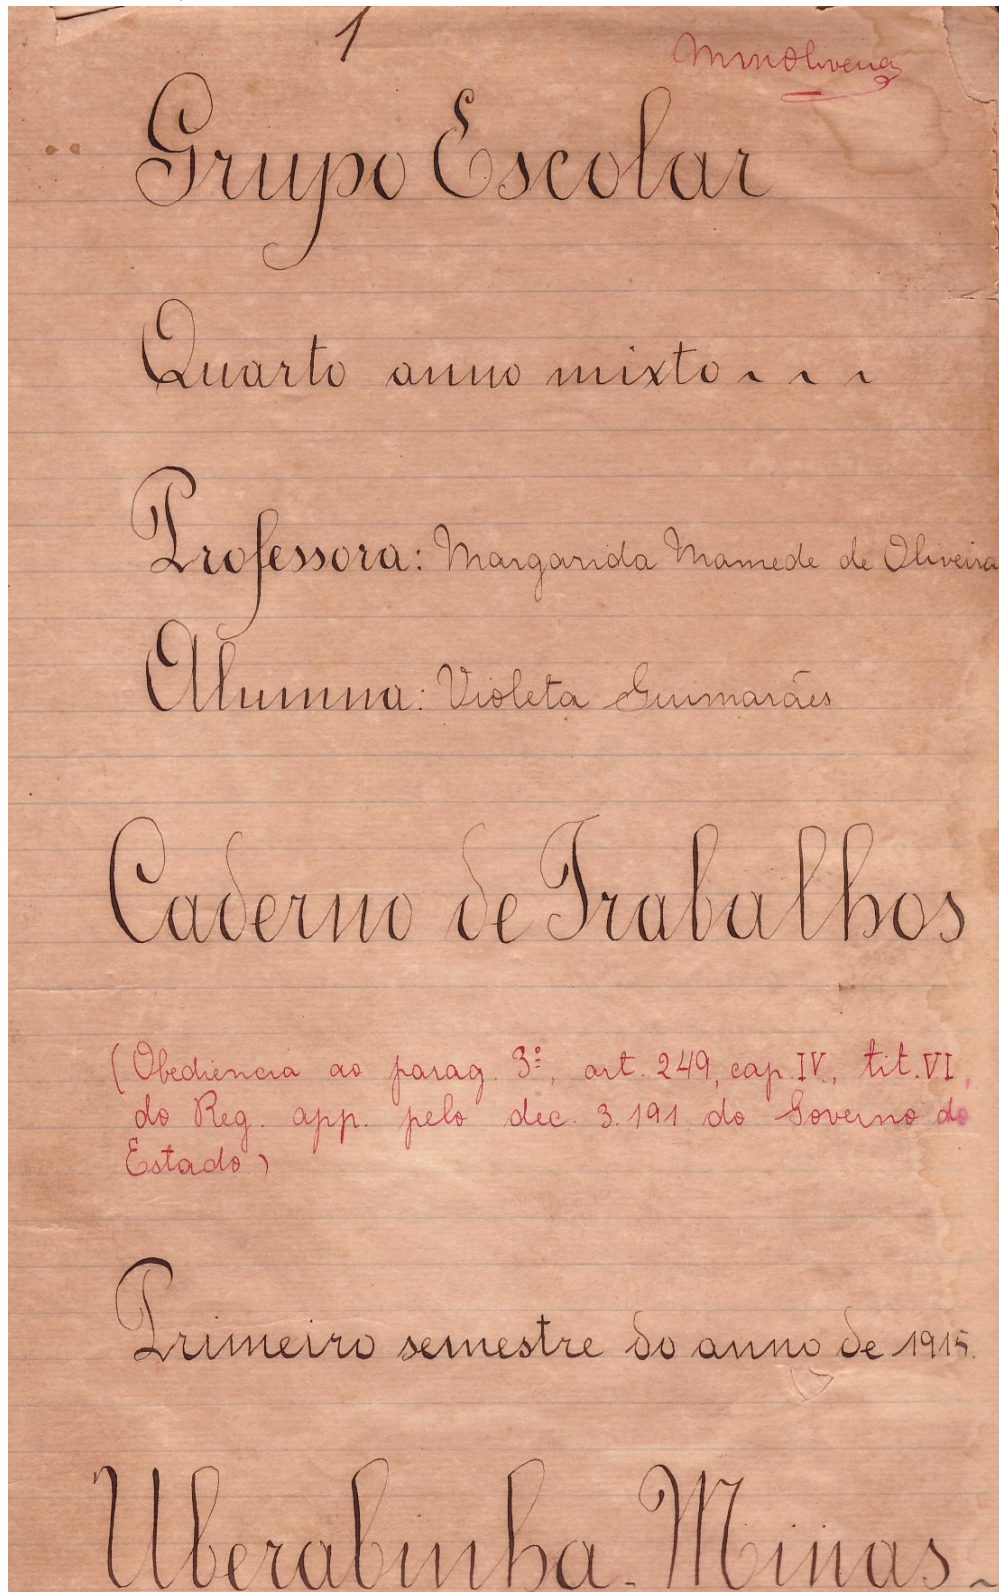 1
MMOliveira
Grupo Escolar
Quarto anno mixto ~ ~ ~
Professora: Margarida Mamede de Oliveira
Alumna: Violeta Guimarães
Caderno de Trabalhos
(Obediencia ao parag. 3º, art. 249, cap. IV, tit. VI,
do Reg. app. pelo dec. 3.191 do Governo do
Estado)
Primeiro semestre do anno de 1915.
Uberabinha - Minas. ~